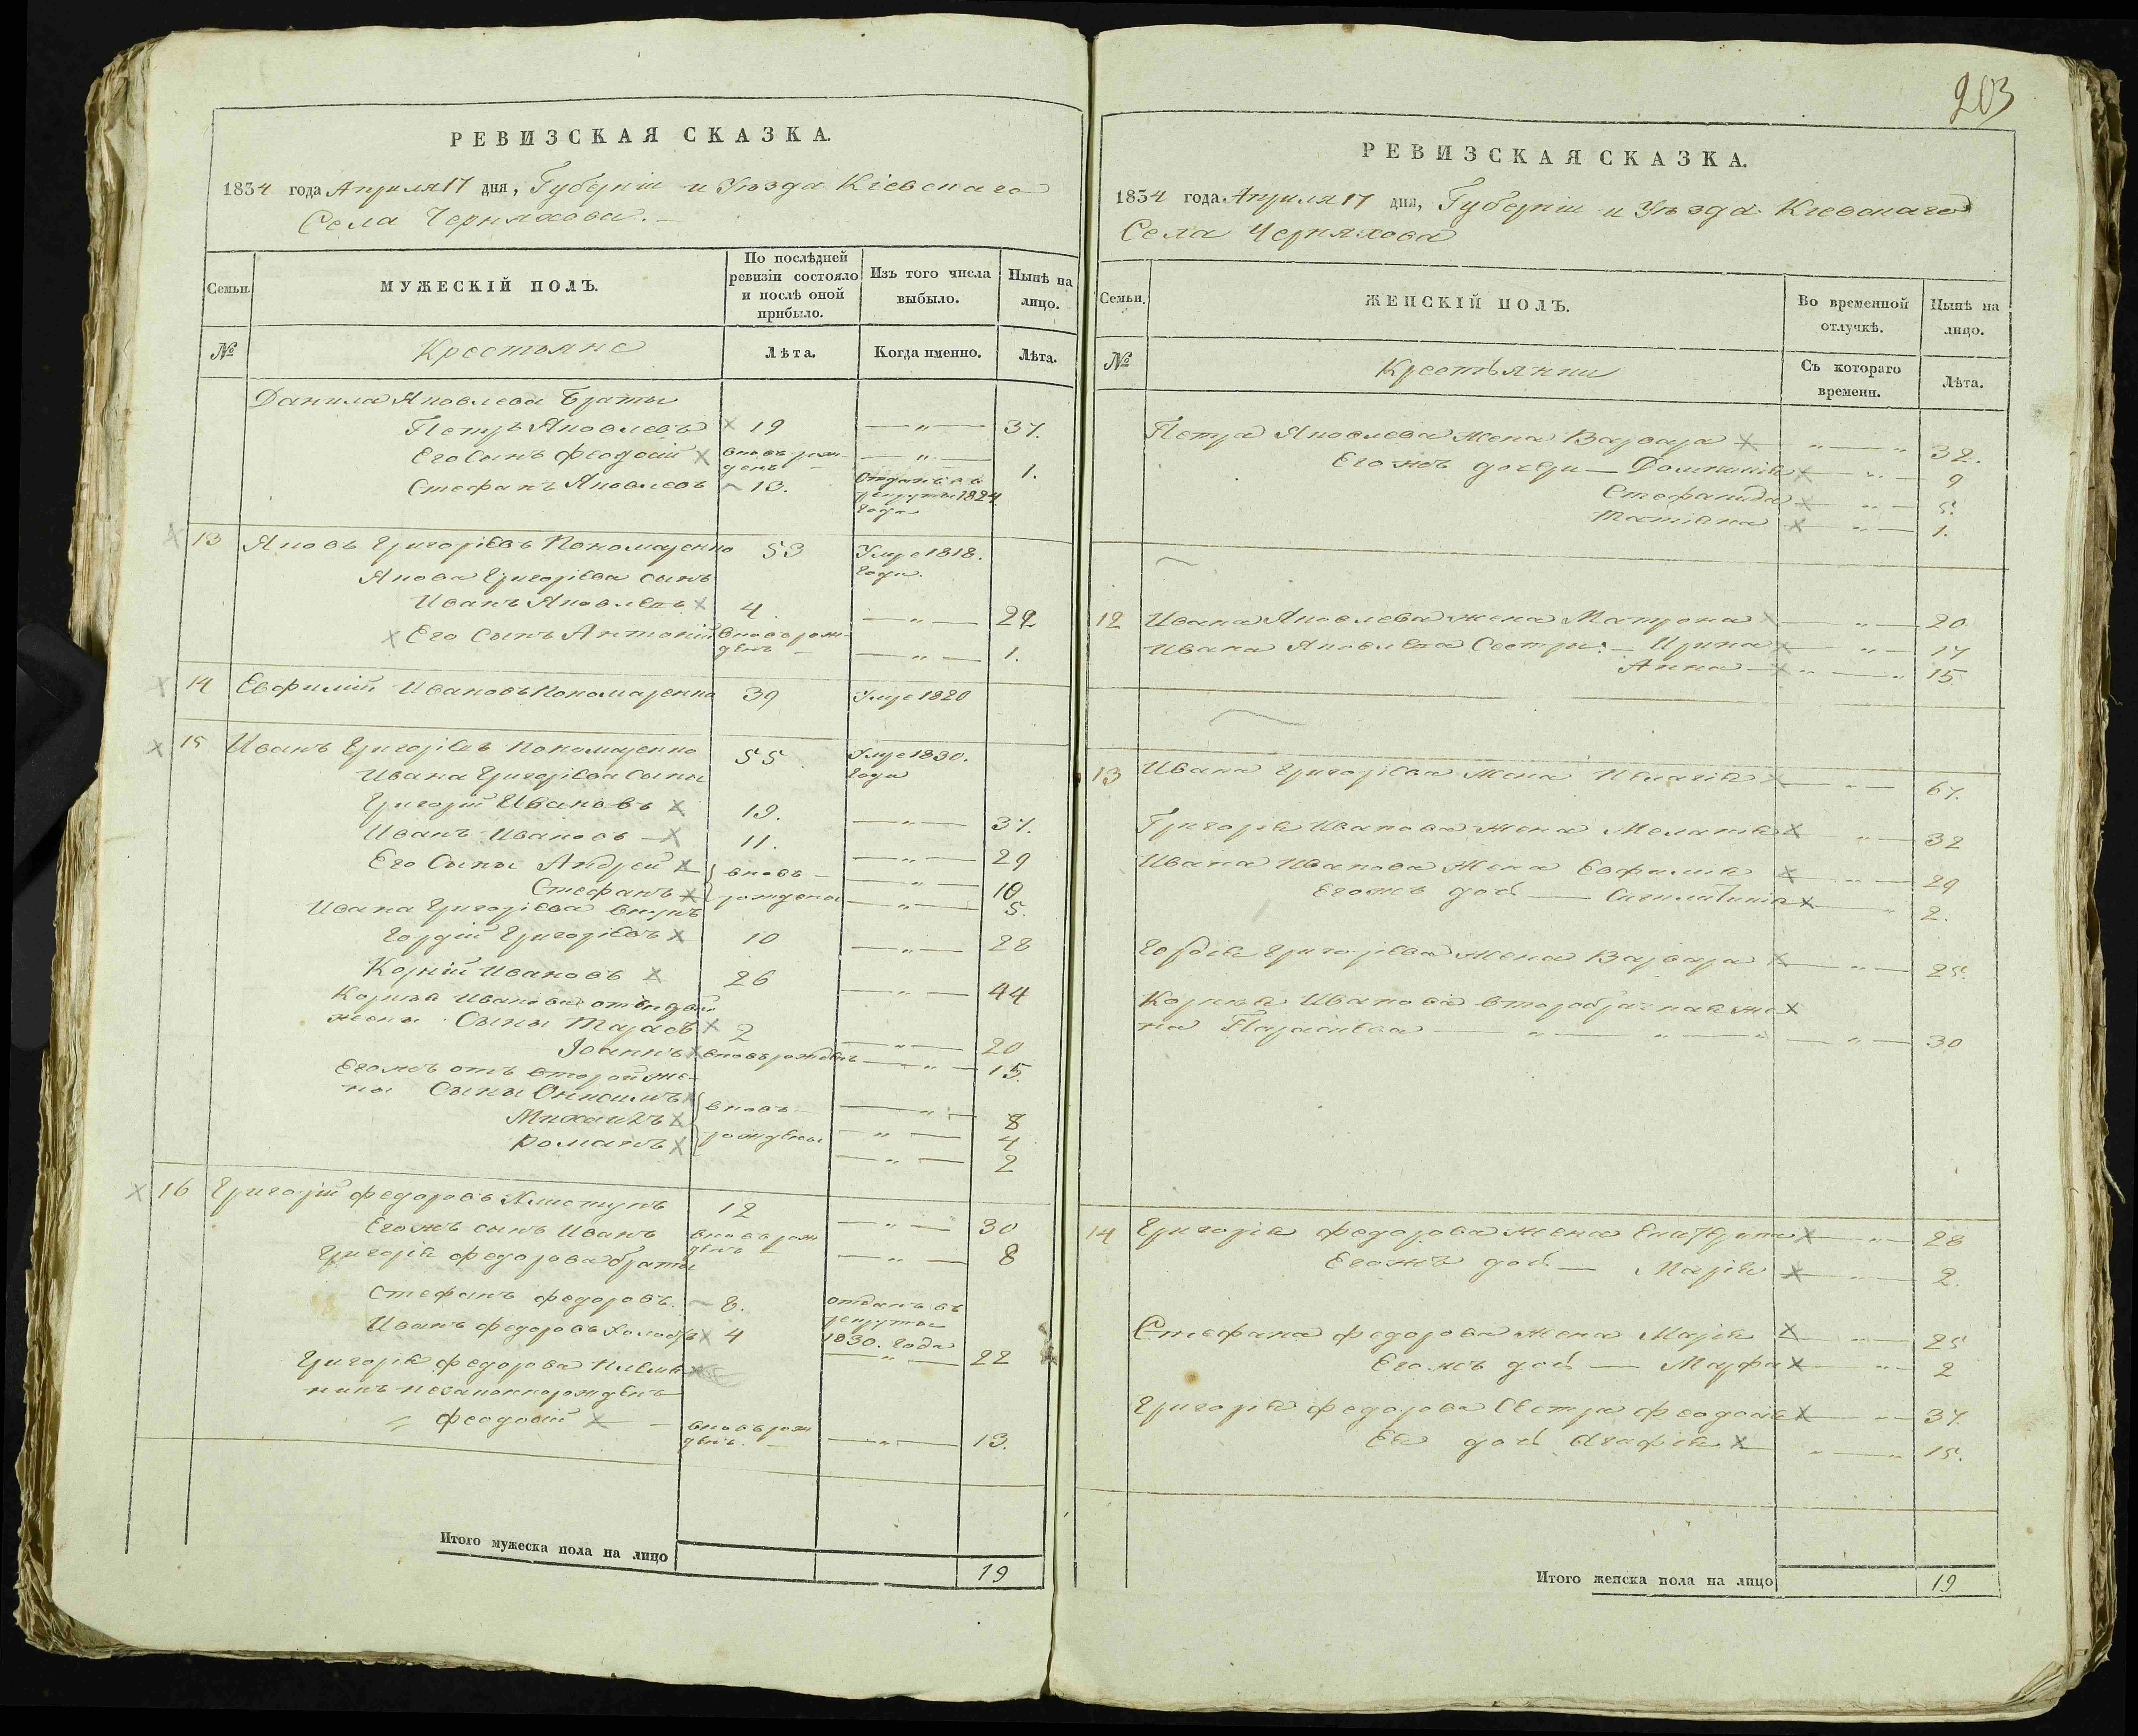 РЕВИЗСКАЯ СКАЗКА.
1834 года Апреля 17 дня, Губерніи и Уѣзда Кіевскаго
Села Черняхова.
Семьи.
МУЖЕСКІЙ ПОЛЪ.
По послѣдней ревизіи состояло и послѣ оной прибыло.
Изъ того числа выбыло.
Нынѣ на лицо.
№
Крестьяне
Лѣта.
Когда именно.
Лѣта.
Данила Яковлева Браты
Петръ Яковлевъ 19 — " — 37.
Его Сынъ Феодосій вновь рожденъ — " — 1.
Стефанъ Яковлевъ 13. Отданъ въ рекруты 1824 года
13 Яковъ Григоріевъ Пономаренко 53 Умре 1818. года.
Якова Григоріева сынъ
Иванъ Яковлевъ 4 — " — 22
Его Сынъ Антоній вновь рожденъ — " — 1.
14 Евфимій Ивановъ Пономаренко 39 Умре 1820
15 Иванъ Григоріевъ Пономаренко 55 Умре 1830. года
Ивана Григоріева Сыны
Григорій Ивановъ 19. — " — 37.
Иванъ Ивановъ 11. — " — 29
Его Сыны Андрей вновь — " — 10
Стефанъ рождены — " — 5.
Ивана Григоріева внукъ
Гордій Григоріевъ 10 — " — 28
Корній Ивановъ 26 — " — 44
Корнѣя Иванова от первой
жены Сыны Тарасъ 2 — " — 20
Іоаннъ вновь рожденъ — " — 15.
Егожъ отъ второй же-
ны Сыны Онисимъ вновь — " — 8
Михаилъ рождены — " — 4
Романъ — " — 2
16 Григорій Федоровъ Хлистунъ 12 — " — 30
Егожъ сынъ Иванъ вновь рожденъ — " — 8
Григорія Федорова браты
Стефанъ Федоровъ. 8. отданъ въ рекруты 1830. года
Иванъ Федоровъ 4 — " — 22
Григорія Федорова племян
никъ незаконнорожденъ
Феодосій вновь рожденъ. — " — 13.
Итого мужеска пола на лицо 19
203
РЕВИЗСКАЯ СКАЗКА.
1834 года Апреля 17 дня, Губерніи и Уѣзда Кіевскаго
Села Черняхова
Семьи.
ЖЕНСКІЙ ПОЛЪ.
Во временной отлучкѣ.
Нынѣ на лицо.
№
Крестьянки
Съ котораго времени.
Лѣта.
Петра Яковлева жена Варвара " — " 32.
Егожъ дочери — Домникія — " — 9
Стефанида — " — 5.
Татіана — " — 1.
12 Ивана Яковлева жена Матрона — " — 20
Ивана Яковлева Сестры: — Ирина — " — 17
Анна — " — " 15
13 Ивана Григоріева жена Пелагія — " — 67.
Григорія Иванова жена Меланія " — 32
Ивана Иванова жена Евфимія — " — 29
Егожъ дочь — " 2.
Гордія Григоріева жена Варвара — " — 25.
Корнѣя Иванова второбрачная же
на Параскева — " — " — " — " — 30
14 Григорія Федорова жена Екатерина — " — 28
Егожъ дочь — Марія — " — 2.
Стефана Федорова жена Марія — " — 25
Егожъ дочь — Марфа — " — 2
Григорія Федорова Сестра Феодосія — " — 37.
Ея дочь Агафія " — " 15.
Итого женска пола на лицо 19